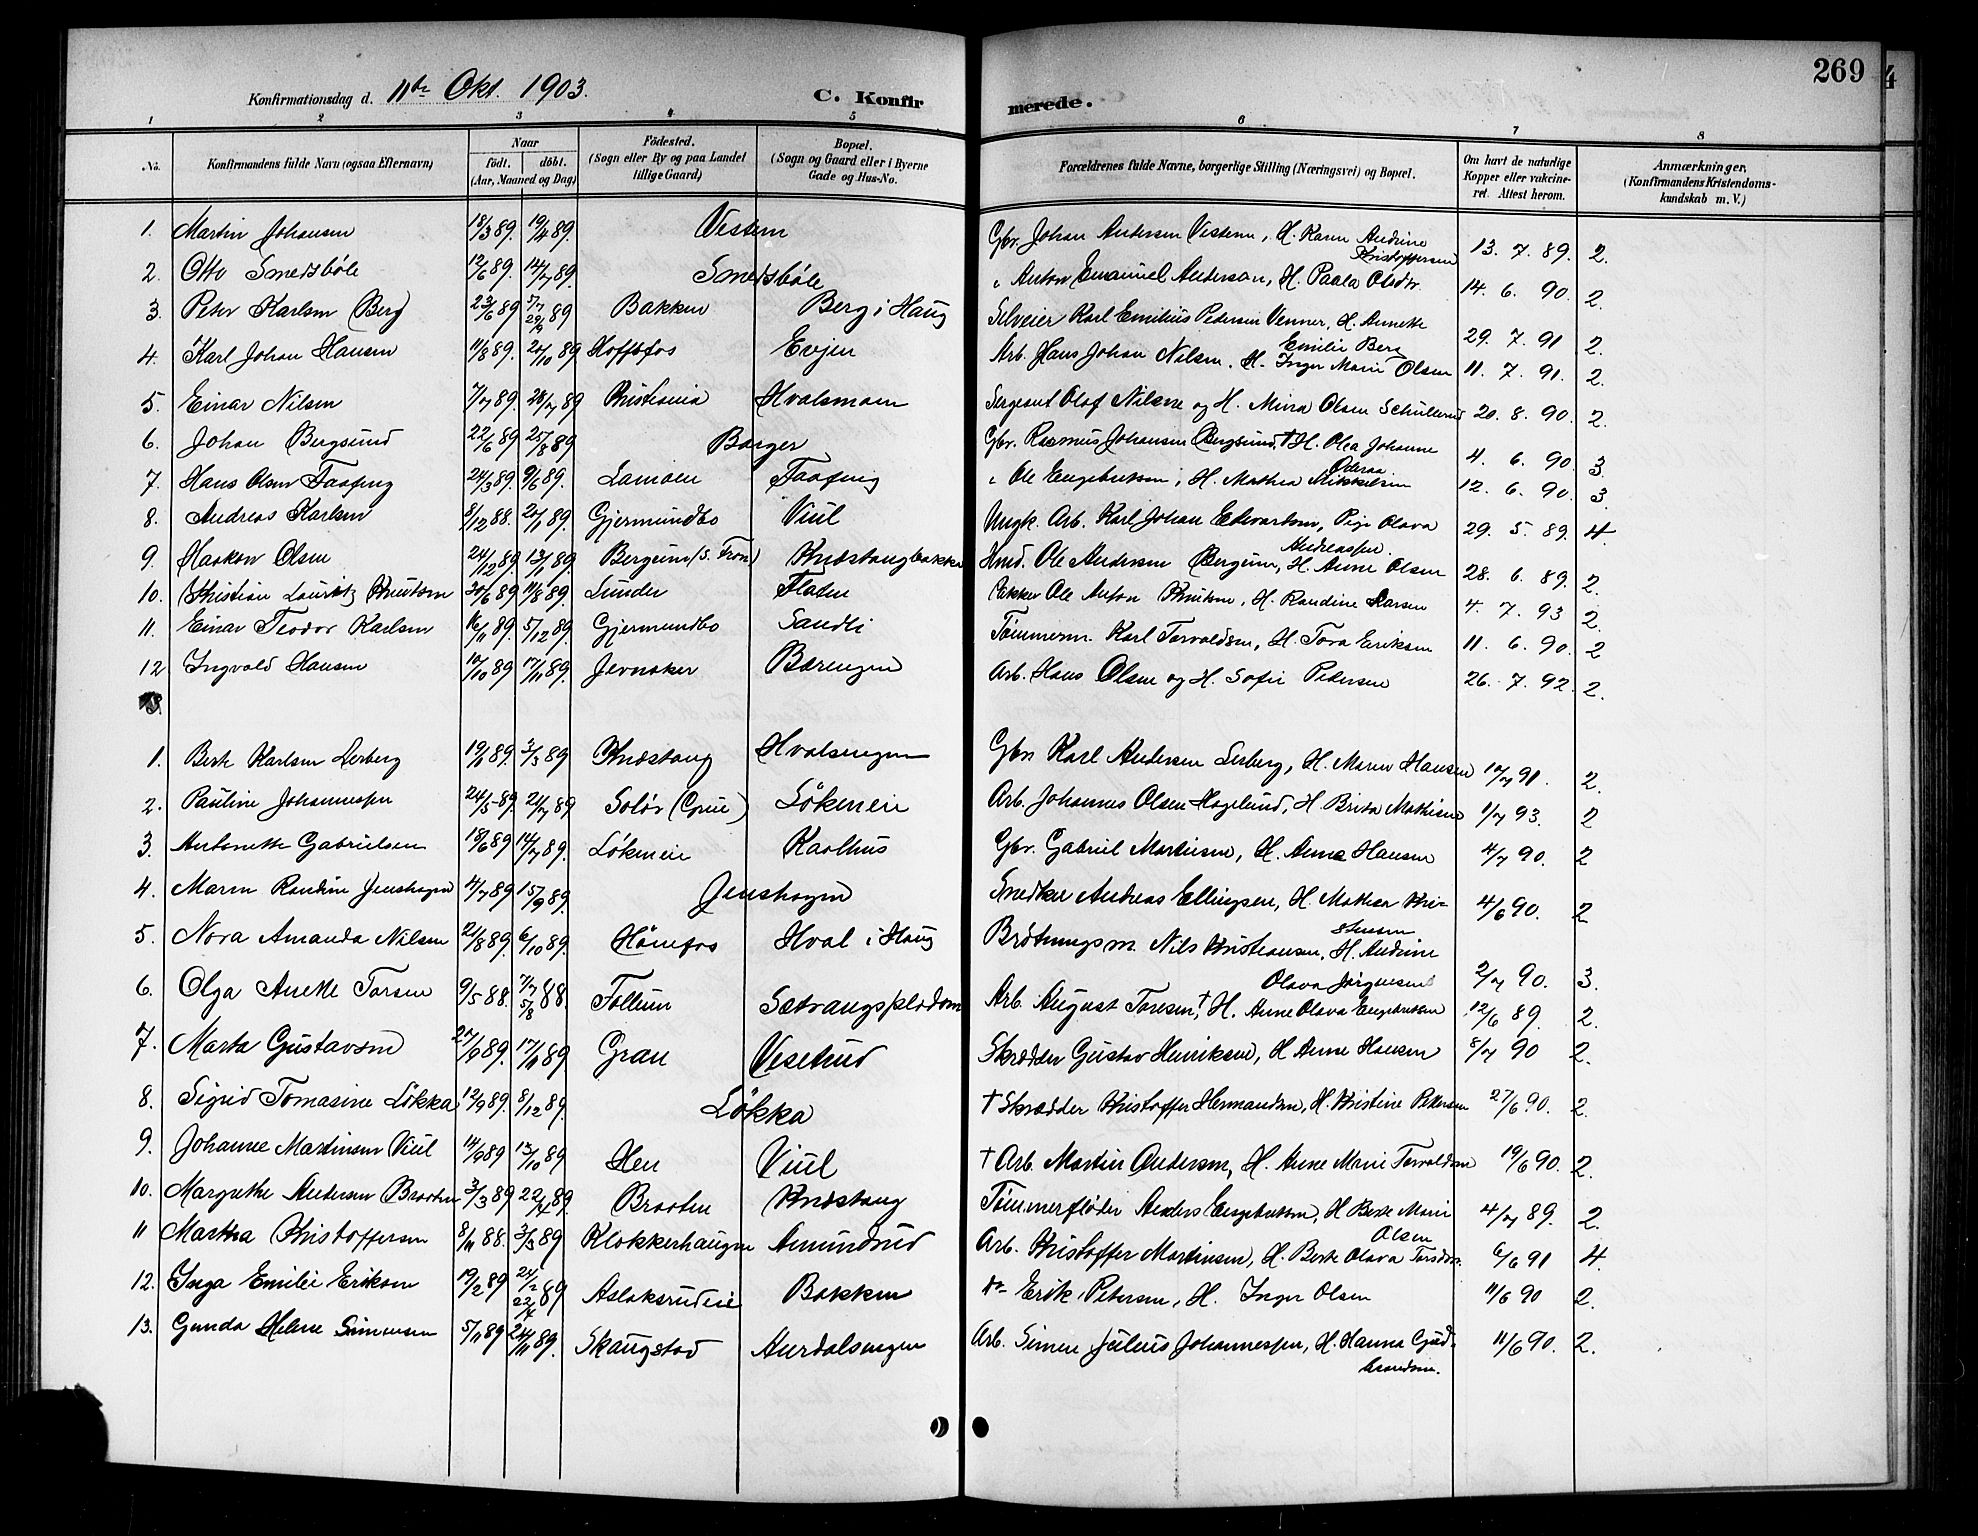 269
Konfirmationsdag d. 11te Okt. 1903. C. Konfirmerede.
1 2 3 4 5 6 7 8
No. Konfirmandens fulde Navn (ogsaa Efternavn) Naar født. døbt. (Aar, Maaned og Dag) Fødested. (Sogn eller By og paa Landet tillige Gaard) Bopæl. (Sogn og Gaard eller i Byerne Gade og Hus-No. Forældrenes fulde Navne, borgerlige Stilling (Næringsvei) og Bopæl. Om havt de naturlige Kopper eller vakcineret. Attest herom. Anmærkninger. (Konfirmandens Kristendomskundskab m. V.)
1. Martin Johansen 18/3 89. 19/4 89. Vestern Gbr. Johan Andersen Vestern, H. Karen Andrine Kristoffersen 13. 7. 89. 2.
2. Otto Smedsbøle 12/6 89. 14/7 89. Smedsbøle " Anton Emanuel Anderson, H. Paula Olsdtr. 14. 6. 90. 2.
3. Peter Karlsen Berg 23/6 89 5/7 29/9 89 Bakken Berg i Haug Selveier Karl Emilius Pedersen Venner, H. Annette Emilie Berg 29. 7. 91 2.
4. Karl Johan Hansen 11/8 89. 20/10 89 Hoffsfos Evjen Arb. Hans Johan Nilsen, H. Inger Marie Olsen 11. 7. 91. 2.
5. Einar Nilsen 7/7 89. 28/7 89 Kristiania Hvalsmoen Sergeant Olaf Nilsen og H. Mina Olsen 20. 8. 90. 2.
6. Johan Bergsund 22/6 89 25/8 89 Borger Gbr. Rasmus Johansen Bergsund, † H. Olea Johanne 4. 6. 90. 3.
7. Hans Olsen Faafeng 24/3 89. 9/6 89. Lamoen Faafeng " Ole Engebretsen, H. Mathea Mikkelsen 12. 6. 90. 3
8. Andreas Karlsen 8/12 88. 20/1 89. Gjermundbo Viul Ungk. Arb. Karl Johan Edvartsen, Pige Olava Andreassen. 29. 5. 89. 4.
9. Haakon Olsen 24/12 89. 13/1 89. Bergum (S. Fron) Knæstangbakken Hmd. Ole Andersen Bergum, H. Anne Olsen 28. 6. 89. 2.
10. Kristian Lauritz Knutsen 30/6 89. 11/8 89. Lunder Flaten Ole Anton Knutsen, H. Randine Larsen 4. 7. 93 2.
11. Einar Teodor Karlsen 16/11 89. 5/12 89. Gjermundbo Sandli Tømmerm. Karl Torvaldsen, H. Tora Eriksen 11. 6. 90. 2
12 Ingvald Hansen 10/10 89 17/11 89. Jevnaker Bærengen Arb. Hans Olsen og H. Sofie Pedersen 26. 7. 92. 2.
1. Berte Karlsen Lerberg 19/1 89. 3/3 89 Knæstang Hvalsengen Gbr. Karl Andersen Lerberg, H. Maren Hansen 10/7 91. 2.
2. Pauline Johannessen 24/5 89. 21/7 89 Solør (Grue) Løkeneie Arb. Johannes Olsen Hagelund, H. Brita Mathisen 1/7 93. 2
3. Antonette Gabrielsen 18/6 89 14/7 89. Løkeneie Karlhus Gbr. Gabriel Martinsen, H. Anne Hansen 4/7 90. 2
4. Maren Randine Jenshagen 4/7 89 15/9 89. Jenshagen Snedker Andreas Ellingsen, H. Mathea Kristensen 4/6 90. 2
5. Nora Amanda Nilsen 21/8 89. 6/10 89. Hønefos Hval i Haug Brøtningsm. Nils Kristiansen, H. Andrine Olava Jørgensen 2/7 90. 3.
6. Olga Anette Torsen 9/5 88. 7/7 5/8 88. Follum Sætrangspladsen Arb. August Torsen †, H. Anne Olava Engebretsen 12/6 89. 2.
7. Marta Gustavsen 27/9 89. 17/11 89 Gran Vesetrud Skrædder Gustav Henriksen, H. Anne Hansen 8/7 90 2.
8. Sigrid Tomasine Løkka 12/9 89. 8/12 89. Løkka † Skrædder Kristoffer Hermandsen, H. Kristine Pettersen 27/6 90. 2.
9. Johanne Martinsen Viul 14/9 89 13/10 89 Hen Viul † Arb. Martin Andersen, H. Anne Marie Torvaldsen 19/6 90. 2.
10. Margrethe Andersen Braaten 3/3 89 22/4 89. Braaten Knæstang Tømmerfløder Anders Engebretsen, H Berte Marie Olsen 4/7 89. 2.
11 Martha Kristoffersen 8/11 88. 3/3 89 Klokkerhaugen Amundrud Arb. Kristoffer Martinsen, H. Berte Olava Torsdtr. 6/6 91 4.
12. Inga Emilie Eriksen 19/2 89 24/2 22/4 89 Aslaksrudeie Bakken do Erik Petersen, H. Inger Olsen 11/6 90 2.
13. Gunda Helene Simensen 5/11 89 24/11 89. Skaugstad Aurdalsengen Arb. Simen Julius Johannessen, H. Hanna Gudbrandsen. 11/6 90. 2.